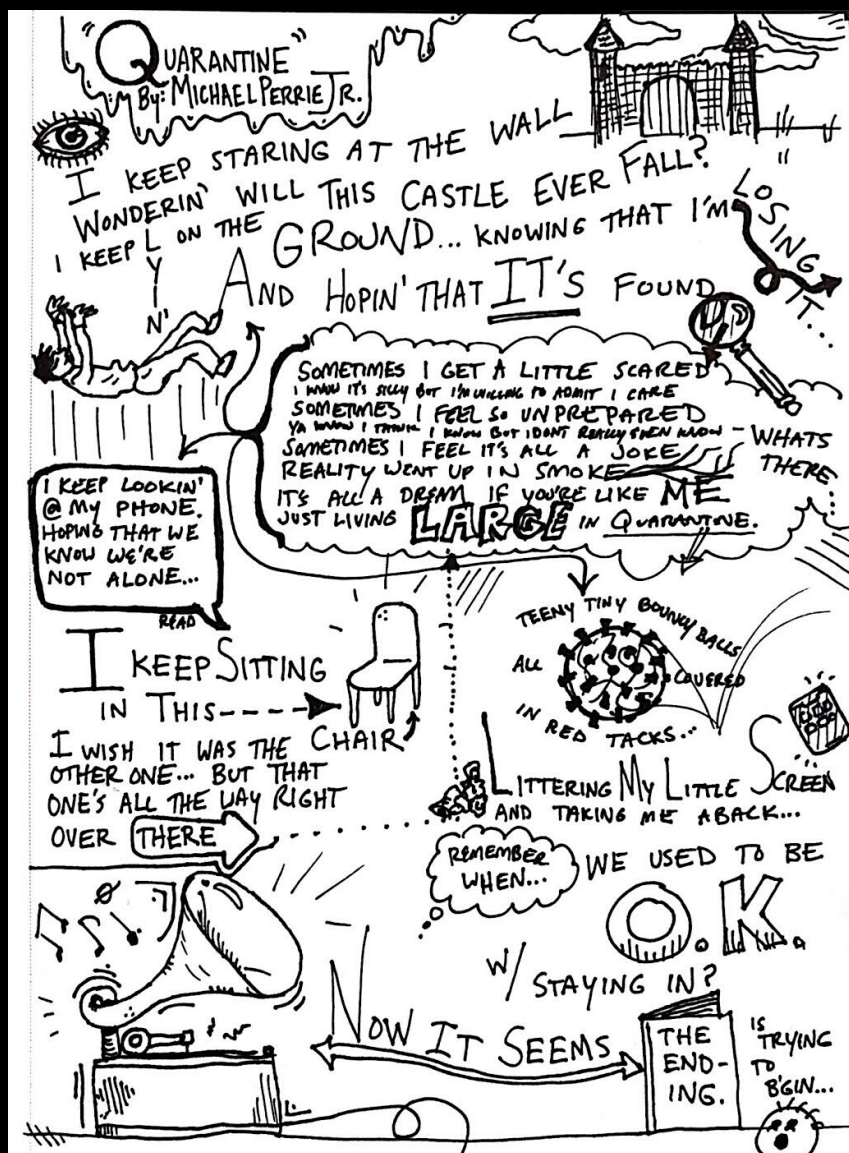 "QUARANTINE"
By: MICHAEL PERRIE JR.
I KEEP STARING AT THE WALL
WONDERIN' WILL THIS CASTLE EVER FALL?
I KEEP LYIN' ON THE GROUND... KNOWING THAT I'M LOSING IT...
AND HOPIN' THAT IT'S FOUND
SOMETIMES I GET A LITTLE SCARED
I KNOW IT'S SILLY BUT I'M WILLING TO ADMIT I CARE
SOMETIMES I FEEL SO UNPREPARED
YA KNOW I THINK I KNOW BUT I DONT REALLY EVEN KNOW - WHATS THERE...
SOMETIMES I FEEL IT'S ALL A JOKE
REALITY WENT UP IN SMOKE
IT'S ALL A DREAM IF YOU'RE LIKE ME
JUST LIVING LARGE IN QUARANTINE.
I KEEP LOOKIN'
@ MY PHONE.
HOPING THAT WE
KNOW WE'RE
NOT ALONE...
READ
I KEEP SITTING
IN THIS
CHAIR
I WISH IT WAS THE
OTHER ONE... BUT THAT
ONE'S ALL THE WAY RIGHT
OVER THERE
TEENY TINY BOUNCY BALLS
ALL COVERED
IN RED TACKS...
LITTERING MY LITTLE SCREEN
AND TAKING ME ABACK...
REMEMBER
WHEN...
WE USED TO BE
O.K.
W/ STAYING IN?
NOW IT SEEMS
THE
END-
ING.
IS
TRYING
TO
B'GIN...